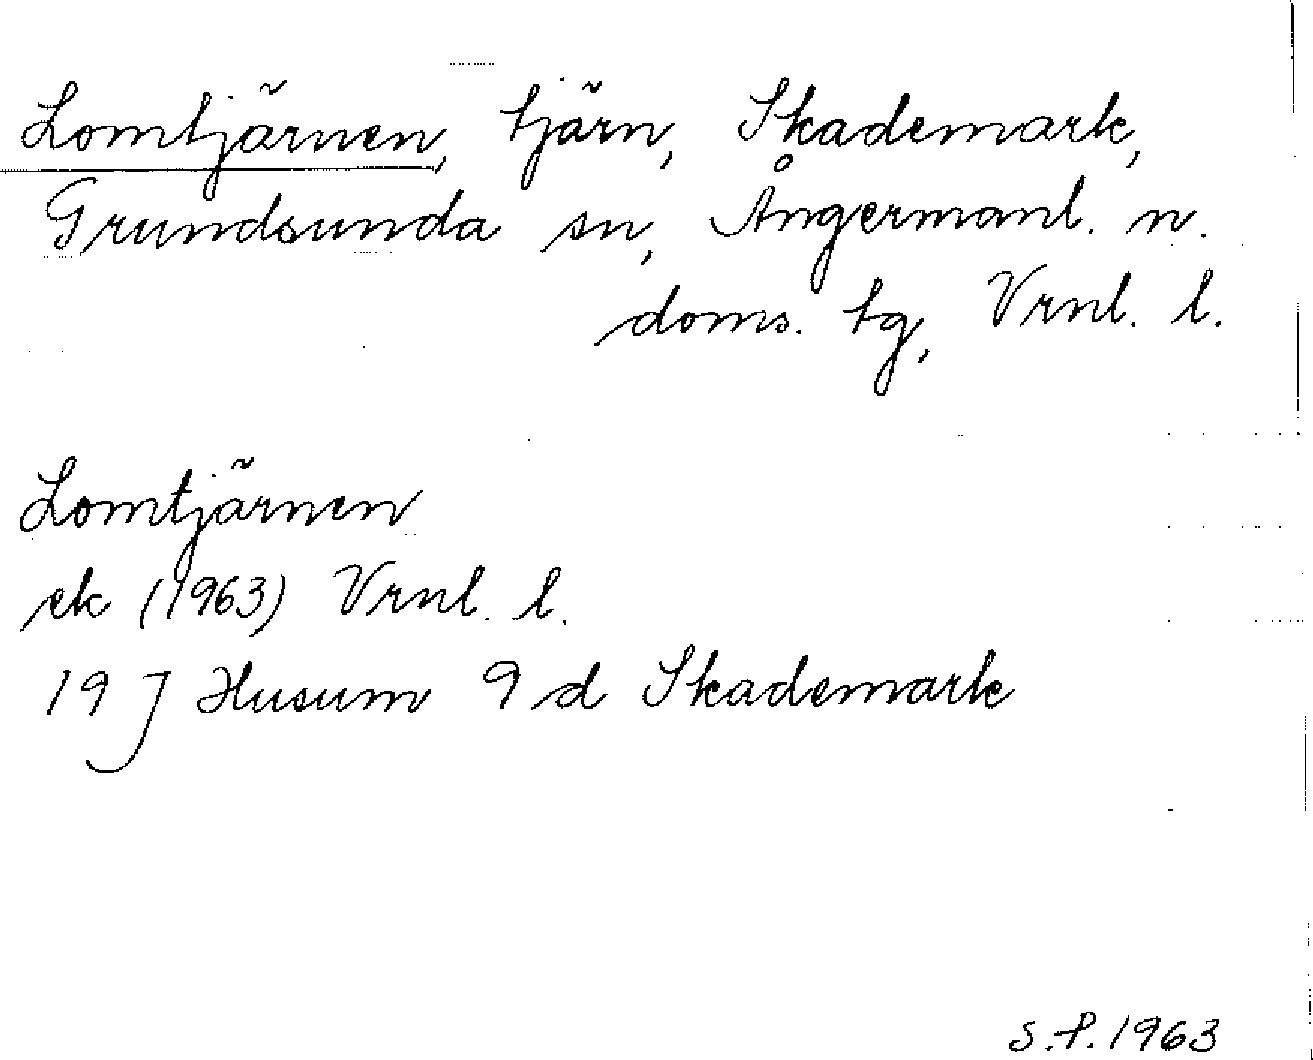 Lomtjärnen, tjärn, Skademark,
Grundsunda sn, Ångermanl. n.
doms. tg, Vrnl. l.
Lomtjärnen
ek (1963) Vrnl. l.
19 J Husum 9 d Skademark
S.P. 1963